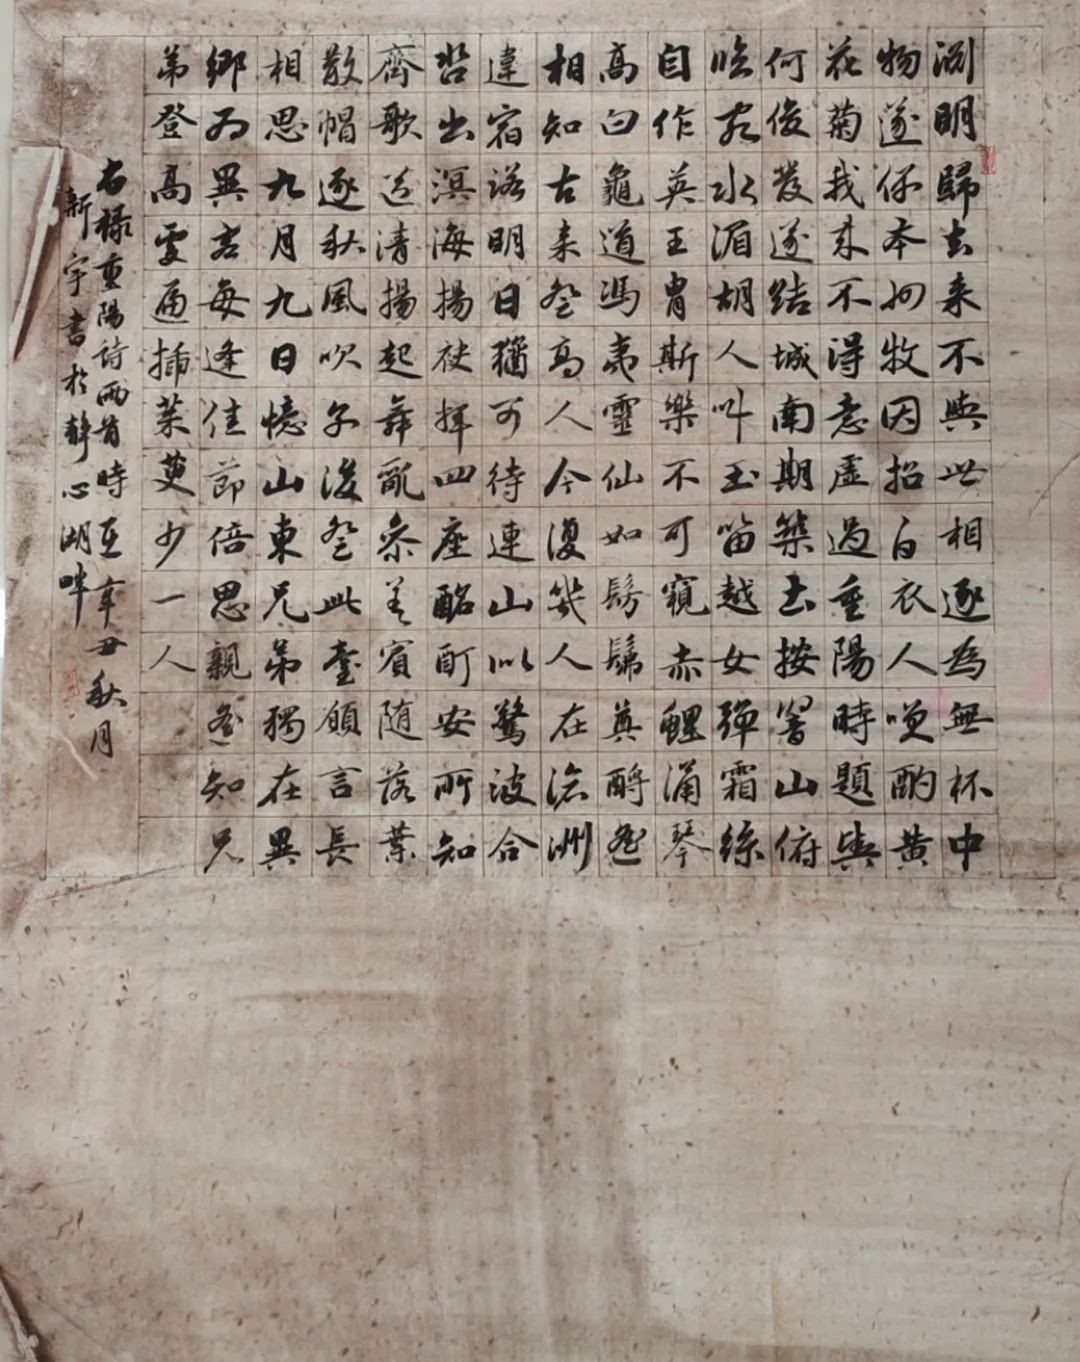 淵明歸去來不與世相逐為無杯中
物遂偶本州牧因招白衣人笑酌黃
花菊我來不得意虛過重陽時題輿
何俊發遂結城南期築土按響山俯
臨宛水湄胡人叫玉笛越女彈霜絲
自作英王胄斯樂不可窺赤鯉涌琴
高白龜道馮夷靈仙如髣髴奠酹遙
相知古來登高人今復幾人在滄洲
違宿諾明日猶可待連山似驚波合
沓出溟海揚袂揮四座酩酊安所知
齊歌送清揚起舞亂參差賓随落葉
散帽逐秋風吹別後登此臺願言長
相思九月九日憶山東兄弟獨在異
鄉為異客每逢佳節倍思親遙知兄
弟登高處遍插茱萸少一人
右禄重陽詩兩首時在辛丑秋月
新宇書於靜心湖畔